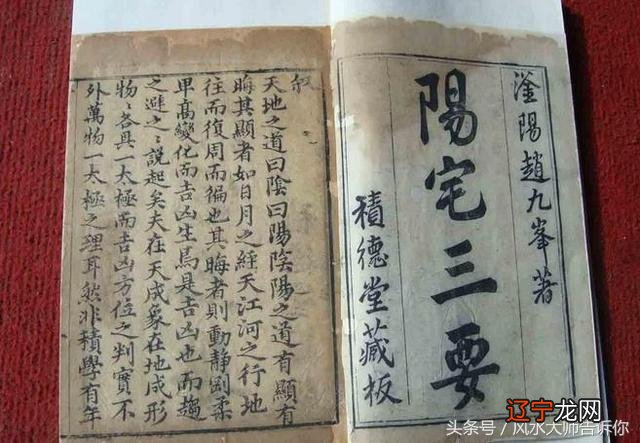 滏陽趙九峯著
陽宅三要
積德堂藏板
叙
天地之道曰陰曰陽陰陽之道有顯有
晦其顯者如日月之經天江河之行地
往而復周而徧也其晦者則動靜剛柔
卑髙變化而吉凶生焉是吉凶也而趨
之避之〻說起矣夫在天成象在地成形
物〻各具一太極而吉凶方位之判實不
外萬物一太極之理耳然非積學有年
辽宁龙网
头条号/风水大师告诉你